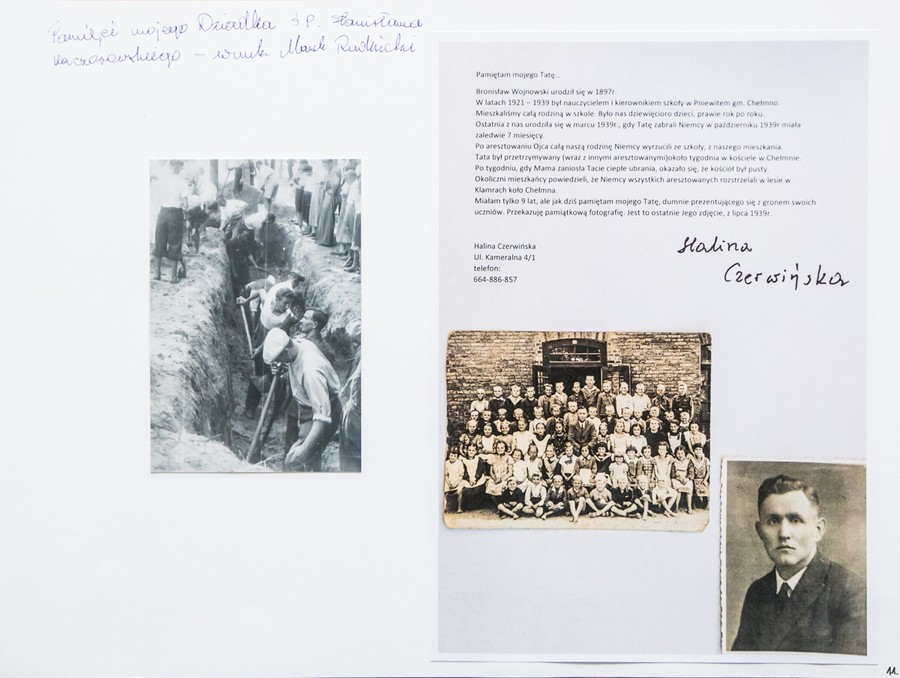 Pamięci mojego Dziadka ś.P. Stanisława
Kaczorowskiego – wnuk Marek Rudnicki
Pamiętam mojego Tatę...
Bronisław Wojnowski urodził się w 1897r.
W latach 1921 – 1939 był nauczycielem i kierownikiem szkoły w Pniewitem gm. Chełmno.
Mieszkaliśmy całą rodziną w szkole. Było nas dziewięcioro dzieci, prawie rok po roku.
Ostatnia z nas urodziła się w marcu 1939r., gdy Tatę zabrali Niemcy w październiku 1939r miała
zaledwie 7 miesięcy.
Po aresztowaniu Ojca całą naszą rodzinę Niemcy wyrzucili ze szkoły, z naszego mieszkania.
Tata był przetrzymywany (wraz z innymi aresztowanymi)około tygodnia w kościele w Chełmnie.
Po tygodniu, gdy Mama zaniosła Tacie ciepłe ubrania, okazało się, że kościół był pusty.
Okoliczni mieszkańcy powiedzieli, że Niemcy wszystkich aresztowanych rozstrzelali w lesie w
Klamrach koło Chełmna.
Miałam tylko 9 lat, ale jak dziś pamiętam mojego Tatę, dumnie prezentującego się z gronem swoich
uczniów. Przekazuję pamiątkową fotografię. Jest to ostatnie Jego zdjęcie, z lipca 1939r.
Halina Czerwińska
Ul. Kameralna 4/1
telefon:
664-886-857
Halina
Czerwińska
11.